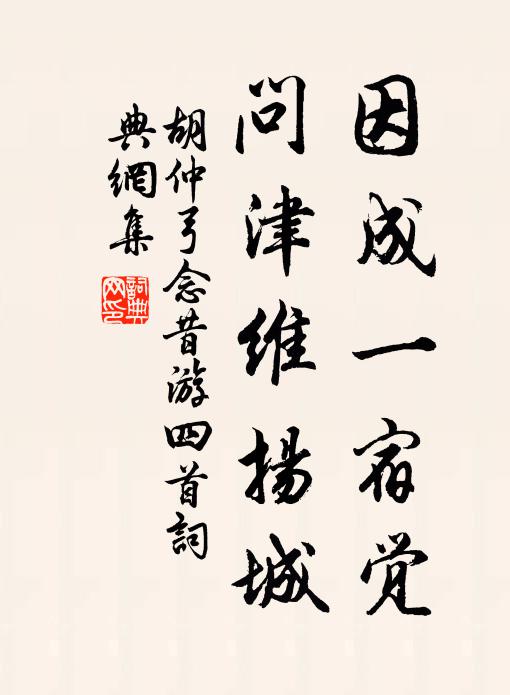 因成一宿觉
问津维扬城
胡仲弓念昔游四首詞
典網集
詞典网印